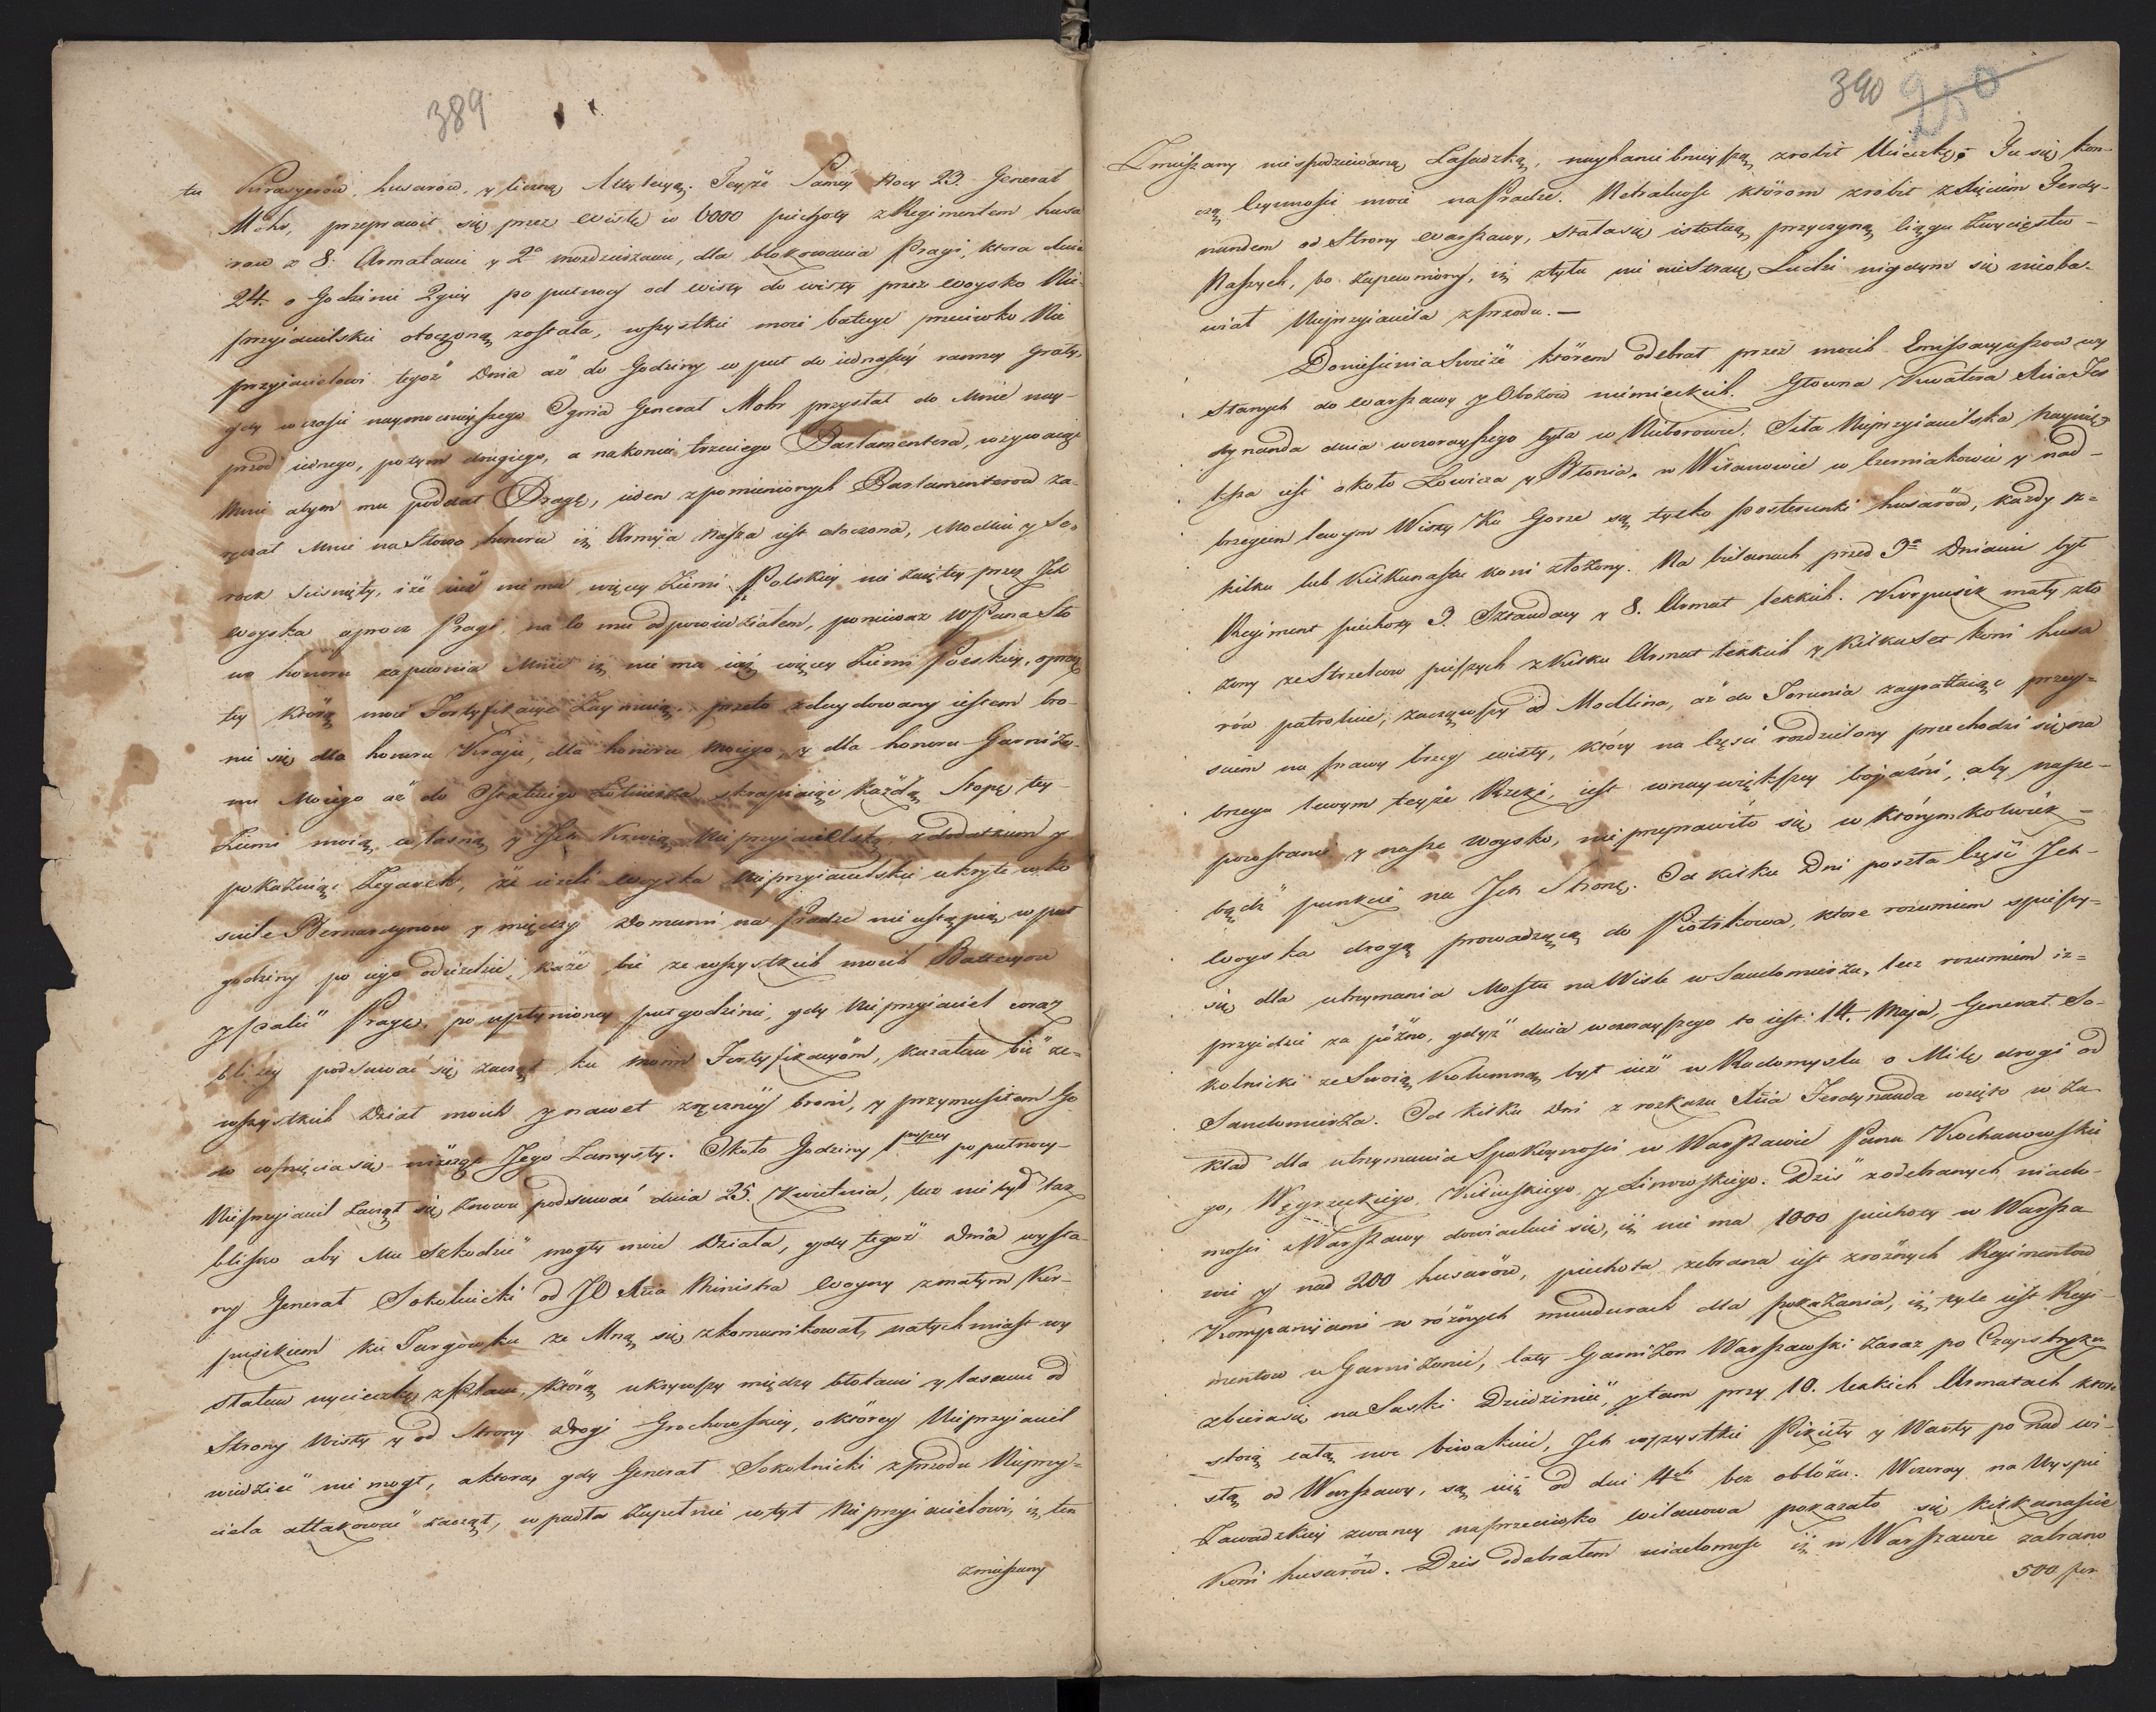 389
tu Kirasyerów, husarów, y liczną Artyleryą. Teyże Samey Nocy 23. Generał
Mohr, przeprawił się przez Wisłę w 6000 piechoty z Regimentem husa
row z 8. Armatami y 2ª mozdzierzami, dla blokowania Pragi, ktora dnia
24. o Godzinie 2giey po pułnocy od Wisły do Wisły przez Woysko Nie-
przyiacielskie otoczoną została, wszystkie moie baterye przeciwko Nie
przyiacielowi tegoż Dnia aż do Godziny w puł do iednasty ranney grały,
gdy w czasie naymocnieyszego Ognia Generał Mohr przysłał do Mnie nay-
przod iednego, potym drugiego, a nakoniec trzeciego Parlamentera, wzywaiąc
Mnie abym mu poddał Pragę, ieden z pomienionych Parlamenterow za-
ręczał Mnie na Słowo honoru iż Armija Nasza iest otoczona, Modlin y Se-
rock scisnięty, i że iuż nie ma więcey Ziemi Polskiey nie zaiętey przez Ich
Woyska oprocz Pragi, na to mu odpowiedziałem, ponieważ WPana Sło
wo honoru zapewnia Mnie iż nie ma iuż więcey Ziemi Polskiey, oprocz
tey którą moie Fortyfikacye Zaymuią, przeto zdecydowany iestem bro-
nić się dla honoru Kraju, dla honoru Moiego, y dla honoru Garnizo-
nu Moiego aż do Ostatniego Żołnierza, skrapiaiąc każdą Stopę tey
Ziemi moią własną y Ich Krwią Nieprzyiacielską, z dodatkiem y
pokazuiąc Zegarek, że ieżeli Woyska Nieprzyiacielskie ukryte w ko
sciele Bernardynow y między Domami na Pradze nie ustąpią w puł
godziny po iego odieździe, każe bić ze wszystkich moich Bateryow
y spalić Pragę, po upłynioney puł godzinie, gdy Nieprzyiaciel coraz
bliżey podsuwać się zaczął ku moim Fortyfikacyom, kazałem bić ze-
wszystkich Dział moich y nawet z ręczney broni, y przymusiłem Go
do cofnięcia się niszcząc Jego Zamysły. Około Godziny pierwszey po pułnocy-
Nieprzyiaciel Zaczął się znowu podsuwać dnia 25. Kwietnia, lecz nie był tak
blisko aby Mu szkodzić mogły moie Działa, gdy tegoż Dnia wysła-
ny Generał Sokolnicki od JO Xcia Ministra Woyny z małym Kor-
pusikiem ku Targówku ze Mną się skomunikował, natychmiast wy
słałem wycieczkę z Placu, którą ukrywszy między błotami y lasami od
Strony Wisły y od Strony Drogi Grochowskiey, o którey Nieprzyiaciel
wiedzieć nie mogł, a ktora, gdy Generał Sokolnicki z przodu Nieprzy-
iaciela attakować zaczął, wpadła Zupełnie w tył Nieprzyiacielowi, iż ten
zmieszany
390 250
Zmieszany niespodziewaną Zasadzką, nayhaniebnieyszą zrobił Ucieczkę. Tu się koń-
czą Czynności moie na Pradze. Netralność którom zrobił z Xięciem Ferdy-
nandem od Strony Warszawy, stała się istotną przyczyną Ciągu Zwycięstw
Naszych, bo Zapewniony, iż z tyłu mi nie strzelą Ludzi nigdym się nieoba-
wiał Nieprzyiaciela z przodu. —
Doniesienia Świeże którem odebrał przez moich Emissaryuszow wy
słanych do Warszawy y Obozow niemieckich. Głowna Kwatera Xcia Fer
dynanda dnia wczorayszego była w Nieborowie. Siła Nieprzyiacielska naywię-
ksza iest około Łowicza y Błonia, w Wilanowie w Czerniakowie y nad-
brzegiem lewym Wisły ku Gorze są tylko posterunki husarów, każdy z-
kilku lub kilkunastu koni złożony. Na bielanach przed 3ª Dniami był
Regiment piechoty 3. Szwadrony y 8. Armat lekkich. Korpusik mały zło
żony ze Strzelcow pieszych z kilku Armat lekkich y kilkuset koni husa
rów patroluie, zacząwszy od Modlina, aż do Torunia zagrażaiąc przey-
sciem na prawy brzeg Wisły, który na Częsci rozdzielony przechodzi się na
brzegu lewym teyże Rzeki, iest w naywiększey boiaźni, aby nasze-
powstanie y nasze Woysko, nie przeprawiło się w którymkolwiek-
bądź punkcie na Ich Stronę. Od kilku Dni poszła Część Ich-
Woyska drogą prowadzącą do Piotrkowa, które rozumiem spieszy-
się dla utrzymania Mostu na Wiśle w Sandomierzu, lecz rozumiem iż-
przyidzie za późno, gdyż dnia wczorayszego to iest: 14. Maja, Generał So-
kolnicki ze Swoią Kolumną był iuż w Radomyslu o Milę drogi od
Sandomierza. Od kilku Dni z rozkazu Xcia Ferdynanda wzięto w Za
kład dla utrzymania Spokoyności w Warszawie Pana Kochanowskie
go, Węgrzeckiego, Kicińskiego y Linowskiego. Dziś z odebranych wiado-
mości z Warszawy dowiaduie się, iż nie ma 1000 piechoty w Warsza
wie y nad 200 husarów, piechota zebrana iest z rożnych Regimentow
Kompaniiami w różnych mundurach dla pokazania, iż tyle iest Regi-
mentow w Garnizonie, cały Garnizon Warszawski Zaraz po Capstrzyku
zbiera się na Saski Dziedziniec, y tam przy 10. lekkich Armatach które
stoią całą noc biwakuie, Ich wszystkie Pikiety y Warty po nad Wi-
słą od Warszawy, są iuż od dni 4ch bez obłożu. Wczoray na Wyspie
Zawadzkiey zwaney naprzeciwko Wilanowa pokazało się kilkanaście
Koni husarów. Dzis odebrałem wiadomosc iż w Warszawie zabrano
500 per